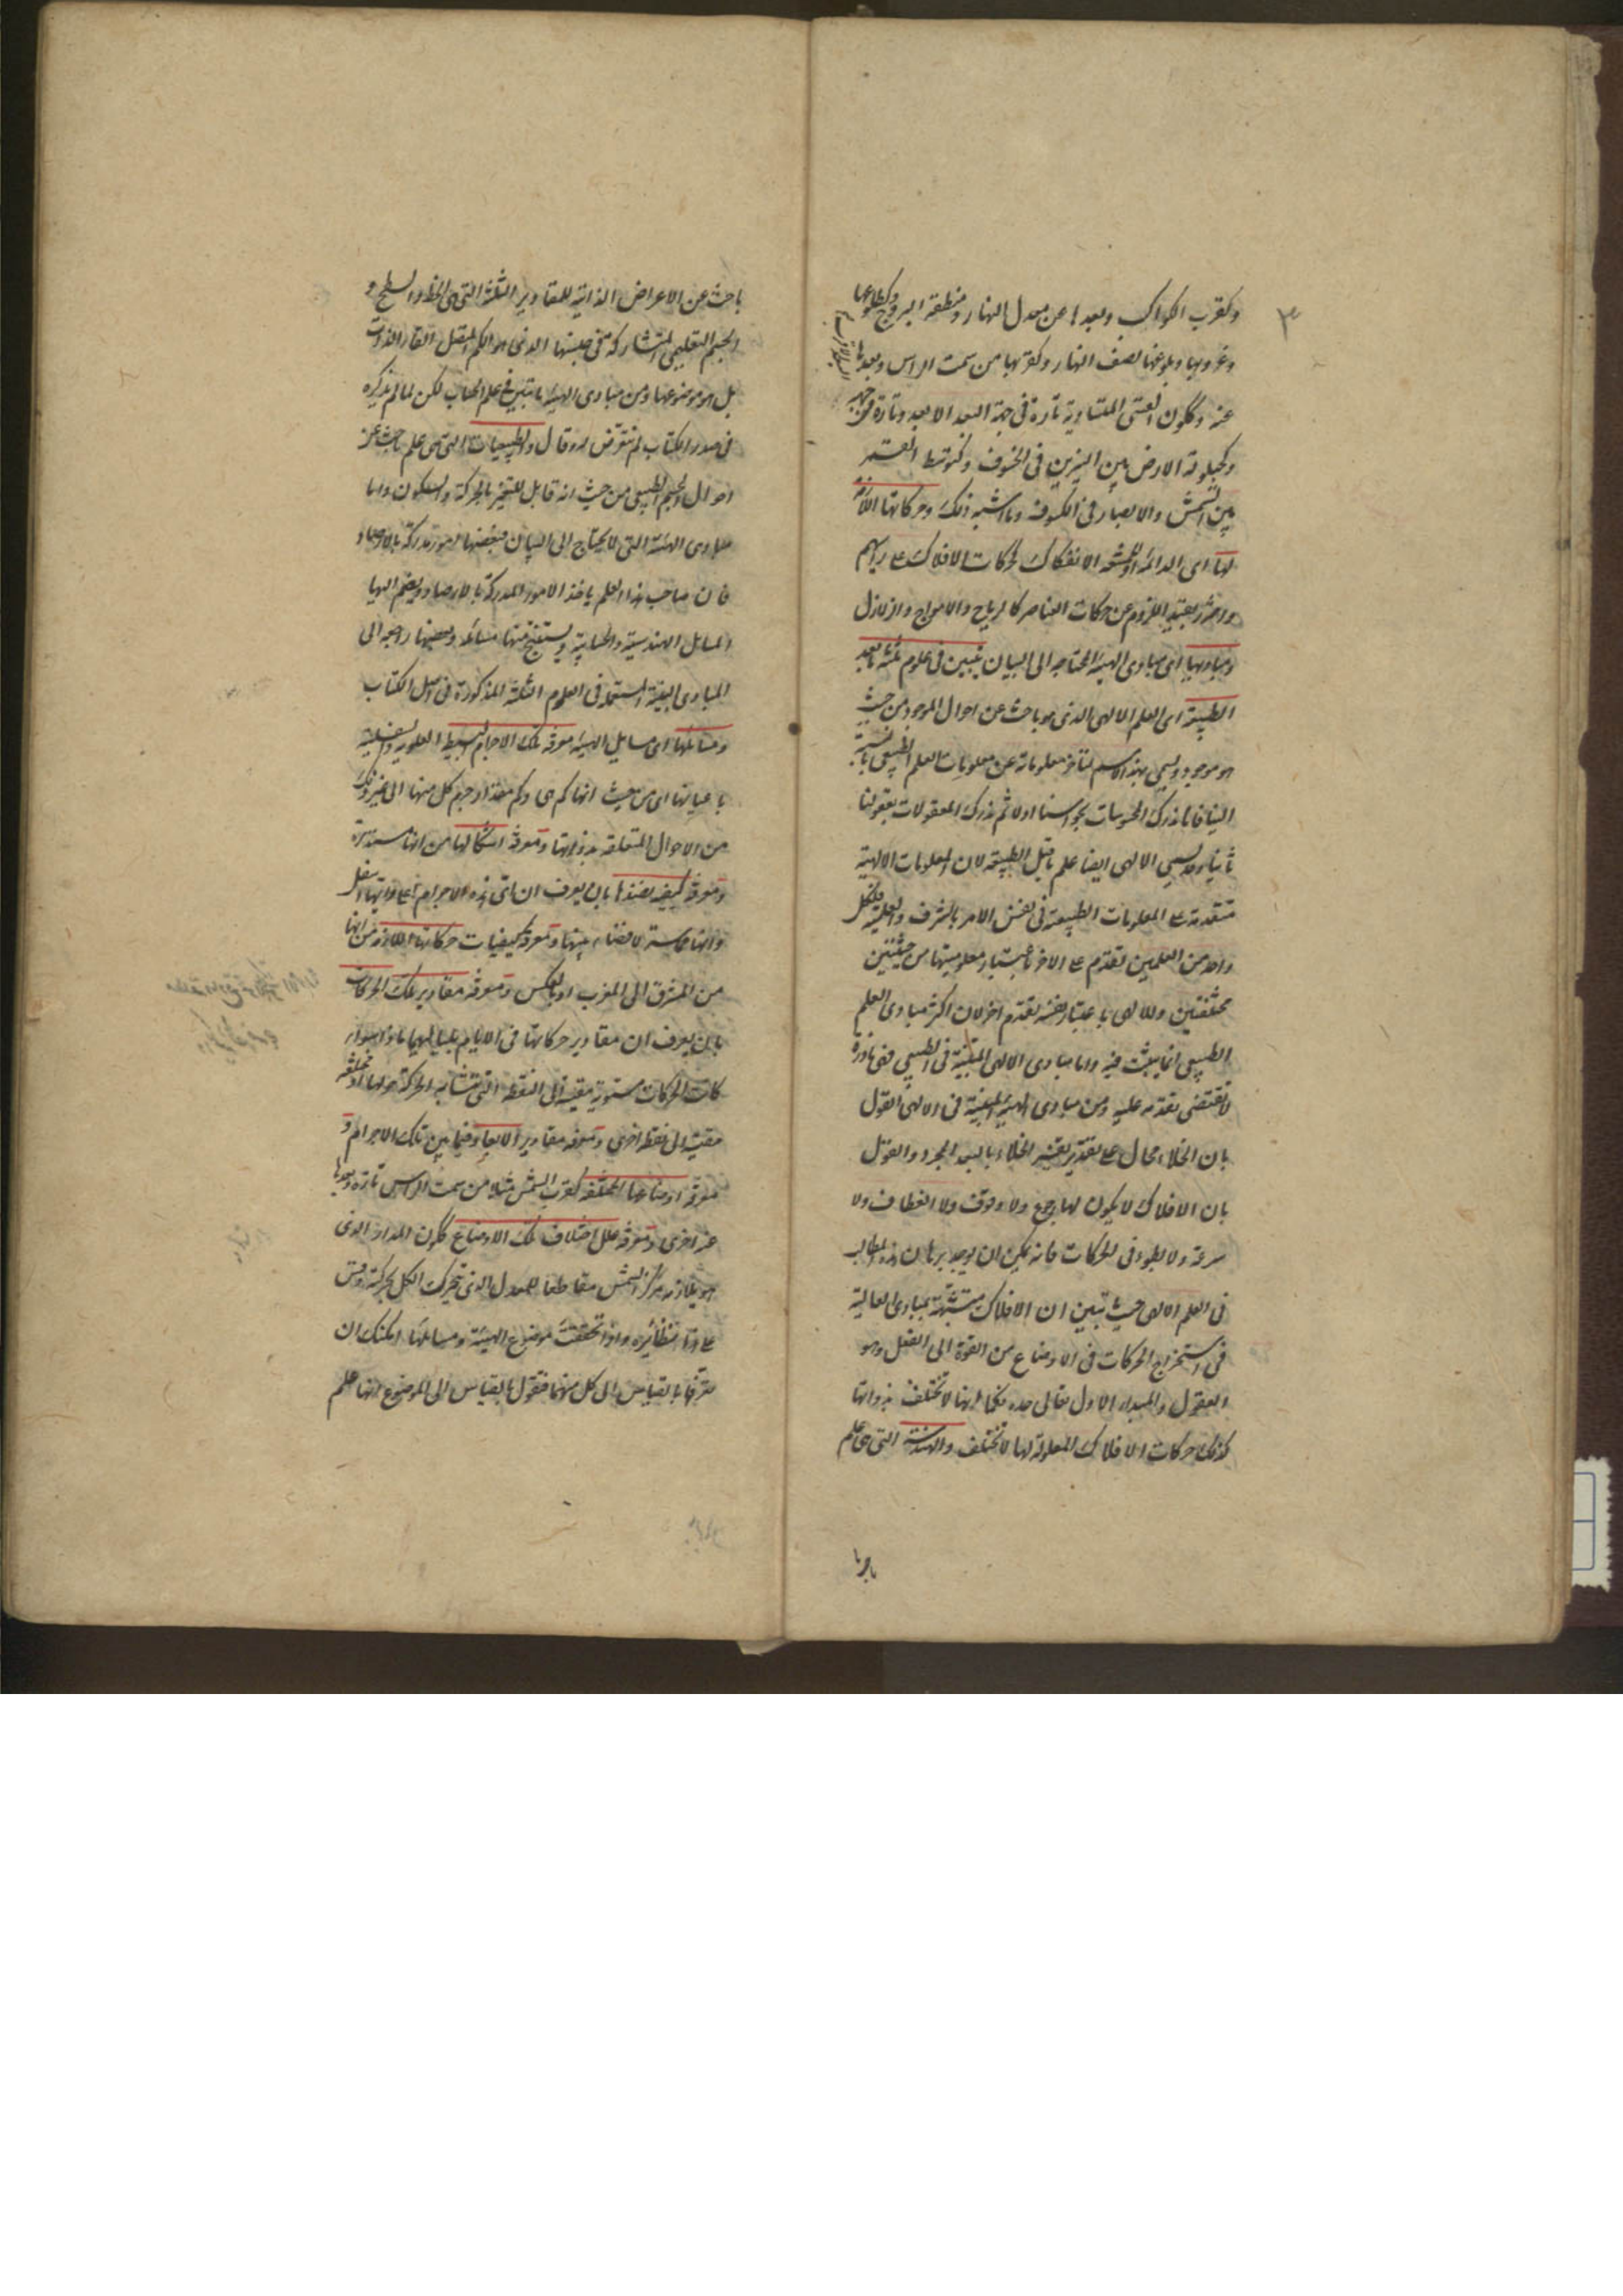 ٣
وكقرب الكواكب وبعدها عن معدل النهار ومنطقة البروج وكطلوعها
وغروبها وبلوغها نصف النهار وكقربها من سمت الراس وبعدها
عنه وككون القسى المتساوية تارة فى جهة البعد الابعد وتارة فى جهة
وكحيلولة الارض بين النيرين فى الخسوف وكتوسط القمر
بين الشمس والابصار فى الكسوف وما اشبه ذلك وحركاتها اللازمة
لها اى الدائمة الانفكاك كحركات الافلاك على رايهم
واحترز بقيد اللزوم عن حركات العناصر كالرياح والامواج والزلازل
ومباديها اى مبادى الهيئة المحتاجة الى البيان تتبين فى علوم ثلثة ما بعد
الطبيعة اى العلم الالهى الذى هو باحث عن احوال الموجود من حيث
هو موجود ويسمى بهذا الاسم لتاخر معلوماته عن معلومات العلم الطبيعى بالنسبة
الينا فانا ندرك المحسوسات بحواسنا اولا ثم ندرك المعقولات بعقولنا
ثانيا وقد يسمى الالهى ايضا علم ما قبل الطبيعة لان المعلومات الالهية
متقدمة على المعلومات الطبيعية فى نفس الامر بالشرف والعلية فلكل
واحد من العلمين تقدم على الاخر باعتبار معلوميتها من حيثيتين
مختلفتين وللالهى باعتبار نفسه تقدم اخر لان اكثر مبادى العلم
الطبيعى انما يبحث فيه واما مبادى الالهى المبينة فى الطبيعى فهى نادرة
لا تقتضى تقدمه عليه ومن مبادى الهيئة المبينة فى الالهى القول
بان الخلاء محال على تقدير تفسير الخلاء بالبعد المجرد والقول
بان الافلاك لا يكون لها رجوع ولا وقوف ولا انعطاف ولا
سرعة ولا بطوء فى الحركات فانه يمكن ان يوجد برهان هذه المطالب
فى العلم الالهى حيث تبين ان الافلاك متشبهة بمبادى العالية
فى استخراج الحركات فى الاوضاع من القوة الى الفعل وهو
العقول والمبداء الاول تعالى جده فكما انها لا تختلف بذواتها
كذلك حركات الافلاك المعلولة لها لا تختلف والهندسة التى هى علم
باحث عن الاعراض الذاتية للمقادير الثلثة التى هى الخط والسطح و
الجسم التعليمى المتشاركة فى جنسها الذى هو الكم المتصل القار الذات
بل هو موضوعها ومن مبادى الهيئة ما تتبين فى علم الحساب لكن لما لم يذكره
فى صدر الكتاب لم نتعرض له وقال والطبيعيات التى هى علم باحث عن
احوال الجسم الطبيعى من حيث انه قابل للتغير بالحركة والسكون واما
مبادى الهيئة التى لا يحتاج الى البيان فبعضها امور مدركة بالارصاد
فان صاحب هذا العلم ياخذ الامور المدركة بالارصاد ويضم اليها
المسايل الهندسية والحسابية ويستنتج منها مسائله وبعضها راجعة الى
المبادى البينة المستعملة فى العلوم الثلثة المذكورة فى اصل الكتاب
ومسائلها اى مسايل الهيئة معرفة تلك الاجرام البسيطة العلوية والسفلية
باعيانها اى من حيث انها كم هى وكم مقدار جرم كل منها الى غير ذلك
من الاحوال المتعلقة بذواتها ومعرفة اشكالها من انها مستديرة
ومعرفة كيفية نضدها بان يعرف ان اى هذه الاجرام اعلى وايها اسفل
وانها متماسة لا فضاء بينها ومعرفة كيفيات حركاتها اللازمة من انها
من المشرق الى المغرب او بالعكس ومعرفة مقادير تلك الحركات
بان يعرف ان مقادير حركاتها فى الايام بلياليها ما هو سواء
كانت الحركات مستوية مقيسة الى النقطة التى تتشابه الحركة حولها او مختلفة
مقيسة الى نقطة اخرى ومعرفة مقادير الابعاد فيما بين تلك الاجرام و
معرفة اوضاعها المختلفة كقرب الشمس مثلا من سمت الراس تارة وبعدها
عنه اخرى ومعرفة علل اختلاف تلك الاوضاع ككون المدار الذى
هو يلازمه مركز الشمس مقاطعا للمعدل الذى يتحرك الكل بحركته وقس
على هذا نظائره واذا تحققت موضوع الهيئة ومسايلها امكنك ان
تعرفها بالقياس الى كل منهما فتقول بالقياس الى الموضوع انها علم
باحث